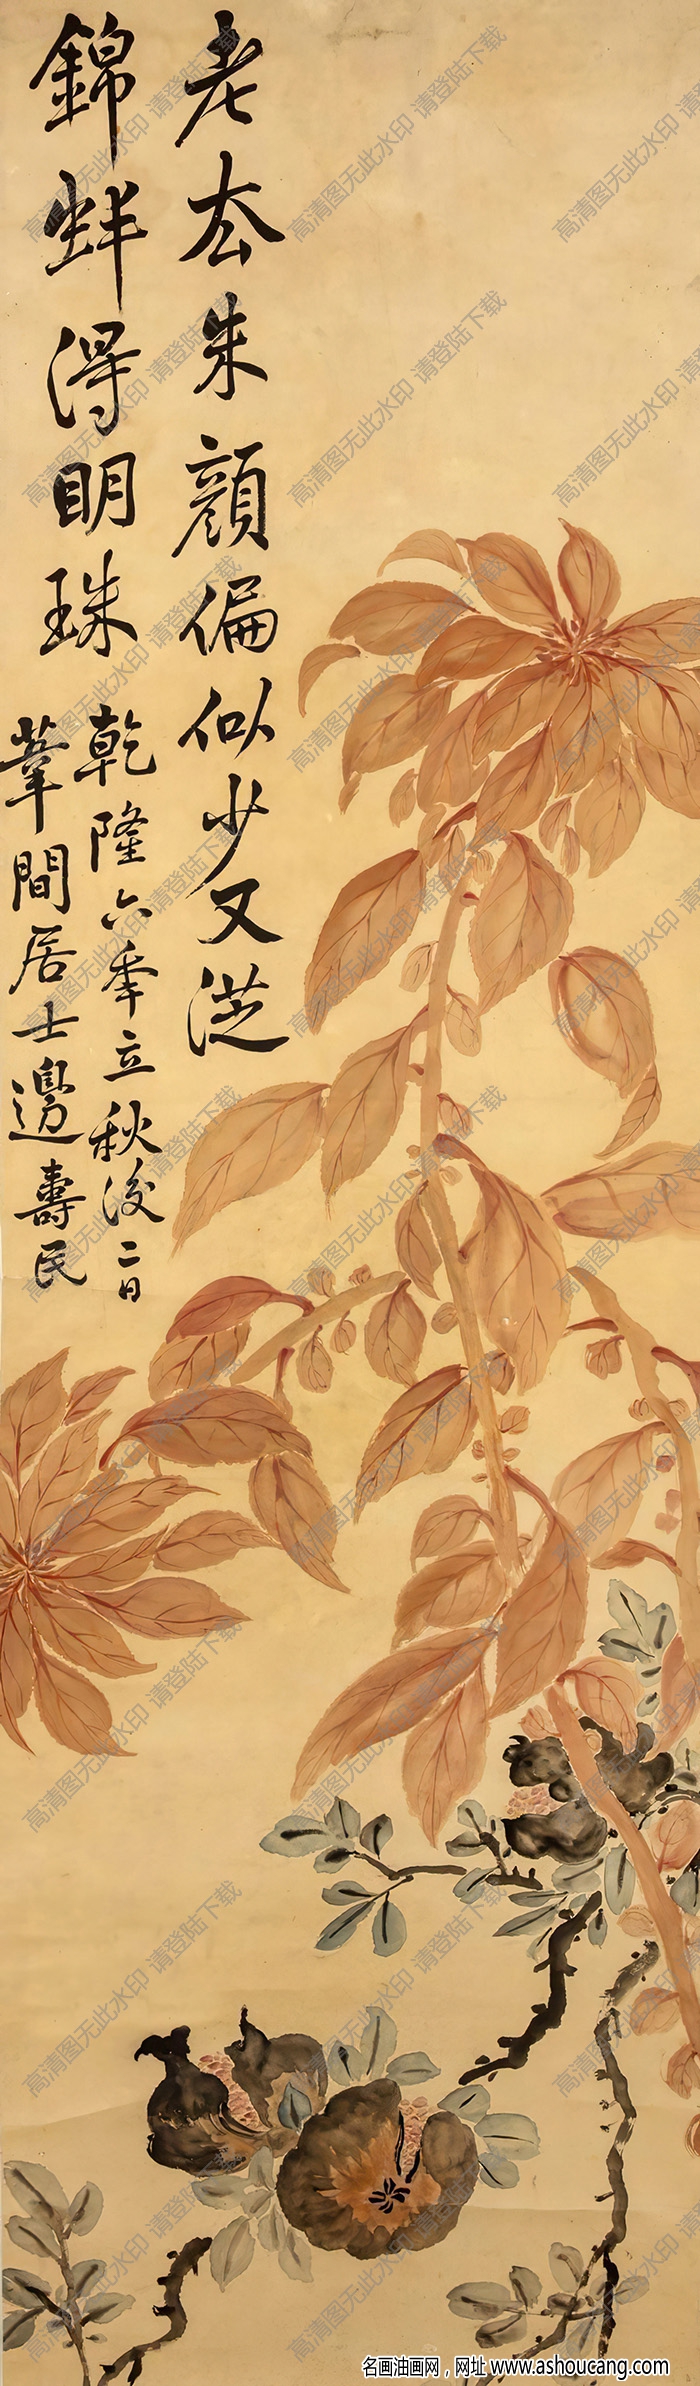 老厺朱顔偏似少又從
錦蚌得明珠
乾隆六秊立秋後二日
葦間居士邊壽民
高清图无此水印 请登陆下载
名画油画网，网址 www.ashoucang.com